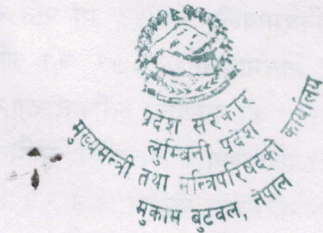 प्रदेश सरकार
लुम्बिनी प्रदेश
मुख्यमन्त्री तथा मन्त्रिपरिषद्को कार्यालय
मुकाम बुटवल, नेपाल